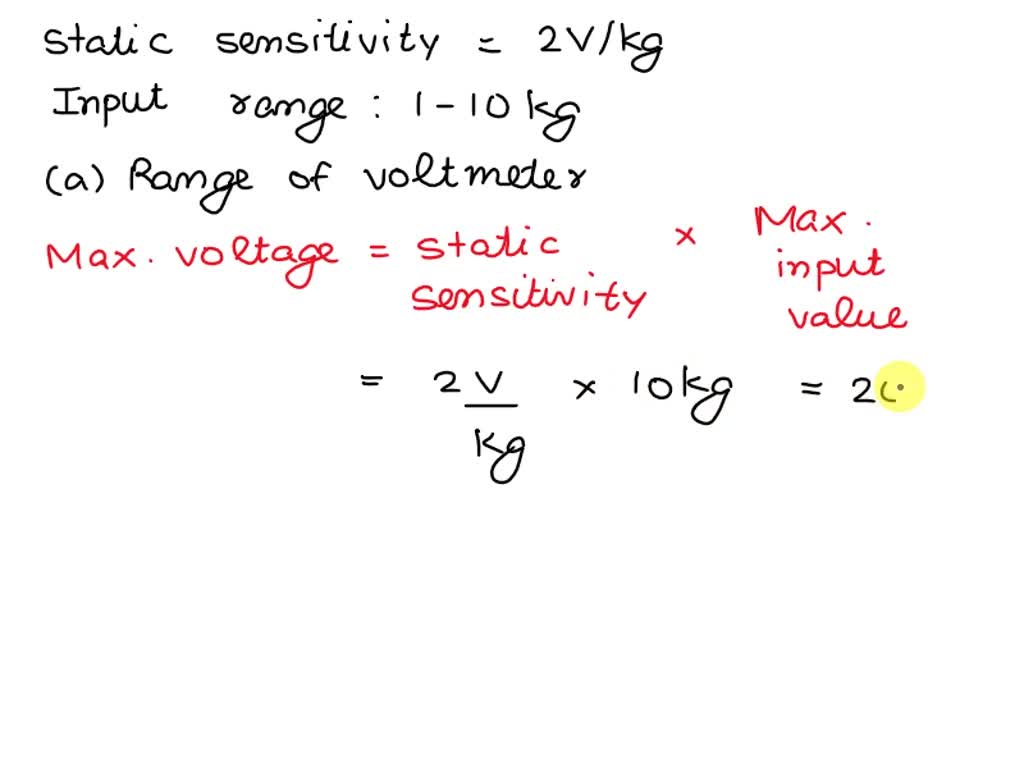 Static sensitivity = 2V/kg
Input range : 1-10 kg
(a) Range of voltmeter
Max. voltage = static sensitivity × Max. input value
= 2 V/kg × 10 kg = 2